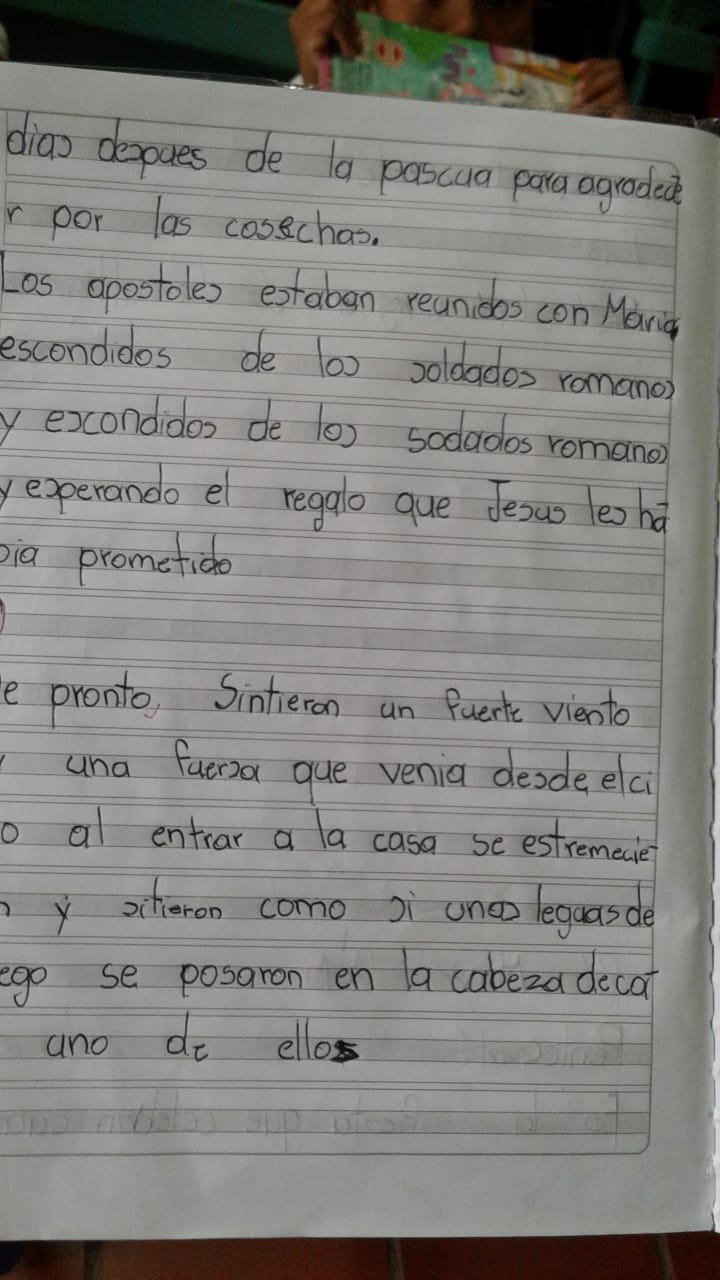 dias despues de la pascua para agradece
r por las cosechas.
Los apostoles estaban reunidos con Maria
escondidos de los soldados romanos
y escondidos de los sodados romanos
y esperando el regalo que Jesus les ha
bia prometido
e pronto, Sintieron un fuerte viento
una fuersa que venia desde el ci
o al entrar a la casa se estremecie
n y sitieron como si unas leguas de
ego se posaron en la cabeza de ca
uno de ellos